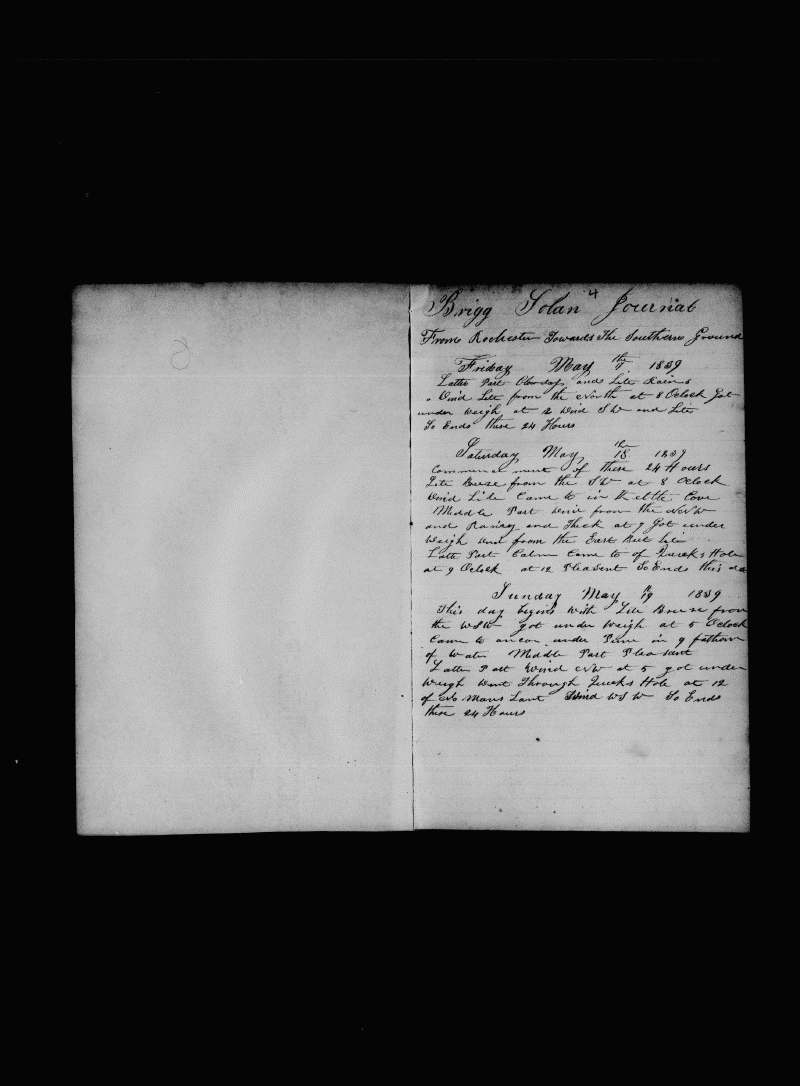 4
Brigg Solan Journal
From Rochester Towards The Southern Ground
Friday May the 1839
Latte Part Clowday and Lite Rains
Wind Lite from the North at 8 Oclock Got
under weigh at 12 Wind S W and Lite
So Ends these 24 Hours
Saturday May the 18 1839
Commencement of these 24 Hours
Lite Breese from the S W at 8 Oclock
Wind Lite Came to in Cove
Middle Part Wind from the
and Rainay and Thick at 7 Got under
Weigh Wind from the East But Lite
Latte Part Calm Came to of Quicks Hole
at 9 Oclock at 12 Pleasent So Ends this
Sunday May 19 1839
This day begins With Lite Breese from
the WSW got under Weigh at 5 Oclock
Came to ancor under in 9 fathom
of Water Middle Part Pleasent
Latter Part Wind at 5 got under
Weigh Went Through Quicks Hole at 12
of No Mans Lant Wind W S W So Ends
these 24 Hours